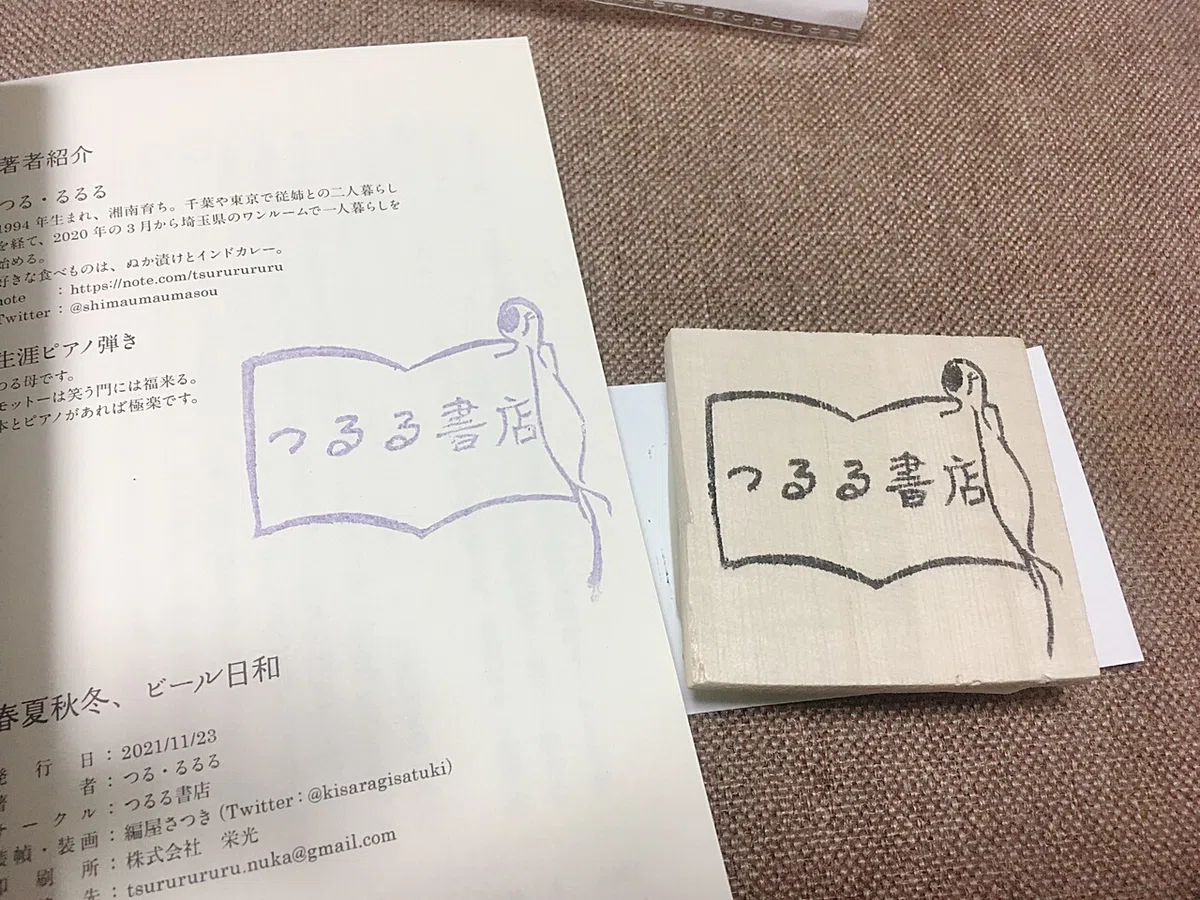 著者紹介
つる・るるる
1994 年生まれ、湘南育ち。千葉や東京で従姉との二人暮らし
を経て、2020 年の 3 月から埼玉県のワンルームで一人暮らしを
始める。
好きな食べものは、ぬか漬けとインドカレー。
note : https://note.com/tsurururururu
Twitter : @shimaumaumasou
生涯ピアノ弾き
つる母です。
モットーは笑う門には福来る。
本とピアノがあれば極楽です。
つるる書店
春夏秋冬、ビール日和
発 行 日 : 2021/11/23
著 者 : つる・るるる
サークル : つるる書店
装幀・装画 : 編屋さつき (Twitter : @kisaragisatuki)
印 刷 所 : 株式会社 栄光
先 : tsurururururu.nuka@gmail.com
つるる書店